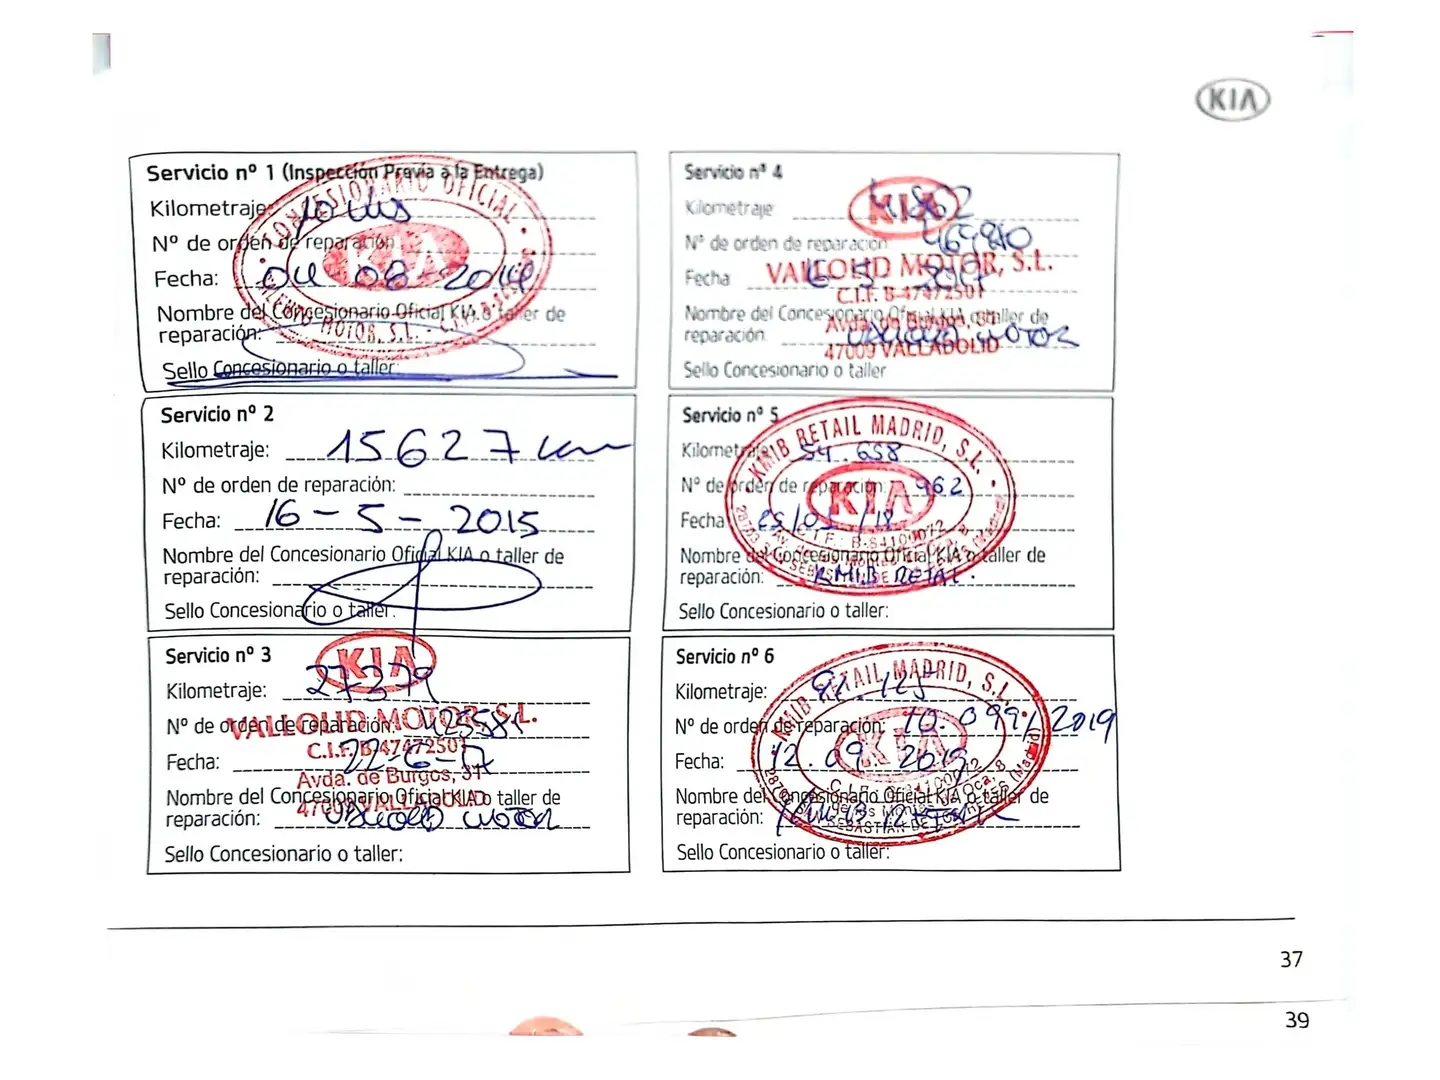 KIA
Servicio nº 1 (Inspección Previa a la Entrega)
Kilometraje: 10 kms
Nº de orden de reparación:
Fecha: 04 08 2014
Nombre del Concesionario Oficial KIA o taller de
reparación:
Sello Concesionario o taller:
CONCESIONARIO OFICIAL
KIA
MOTOR, S.L.
Servicio nº 2
Kilometraje: 15627 km
Nº de orden de reparación:
Fecha: 16-5-2015
Nombre del Concesionario Oficial KIA o taller de
reparación:
Sello Concesionario o taller:
Servicio nº 3
Kilometraje: 27279
Nº de orden de reparación:
Fecha: 22-6-17
Nombre del Concesionario Oficial KIA o taller de
reparación: VALLOUD MOTOR
Sello Concesionario o taller:
KIA
VALLOUD MOTOR, S.L.
C.I.F. B-47472501
Avda. de Burgos, 31
47009 VALLADOLID
Servicio nº 4
Kilometraje
Nº de orden de reparación
Fecha
Nombre del Concesionario Oficial KIA o taller de
reparación VALLOUD MOTOR
Sello Concesionario o taller
KIA
VALLOUD MOTOR, S.L.
C.I.F. B-47472501
Avda. de Burgos, 31
47009 VALLADOLID
Servicio nº 5
Kilometraje: 54.658
Nº de orden de reparación: 962
Fecha
Nombre del Concesionario Oficial KIA o taller de
reparación: KMIB RETAIL.
Sello Concesionario o taller:
KMIB RETAIL MADRID, S.L.
KIA
C.I.F.: B-84100072
Servicio nº 6
Kilometraje:
Nº de orden de reparación: 10.099/2019
Fecha: 12.09.2019
Nombre del Concesionario Oficial KIA o taller de
reparación: KMIB RETAIL
Sello Concesionario o taller:
KMIB RETAIL MADRID, S.L.
KIA
37
39